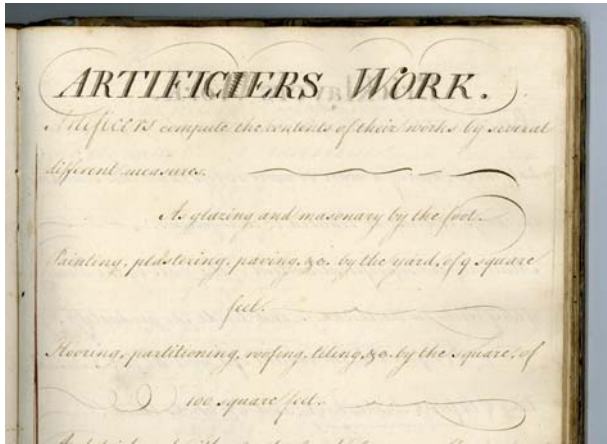 ARTIFICIERS WORK.
Artificers compute the contents of their works by several
different measures.
As glazing and masonary by the foot.
Painting, plastering, paving, &c. by the yard, of 9 square
feet.
Flooring, partitioning, roofing, tiling, &c. by the square, of
100 square feet.